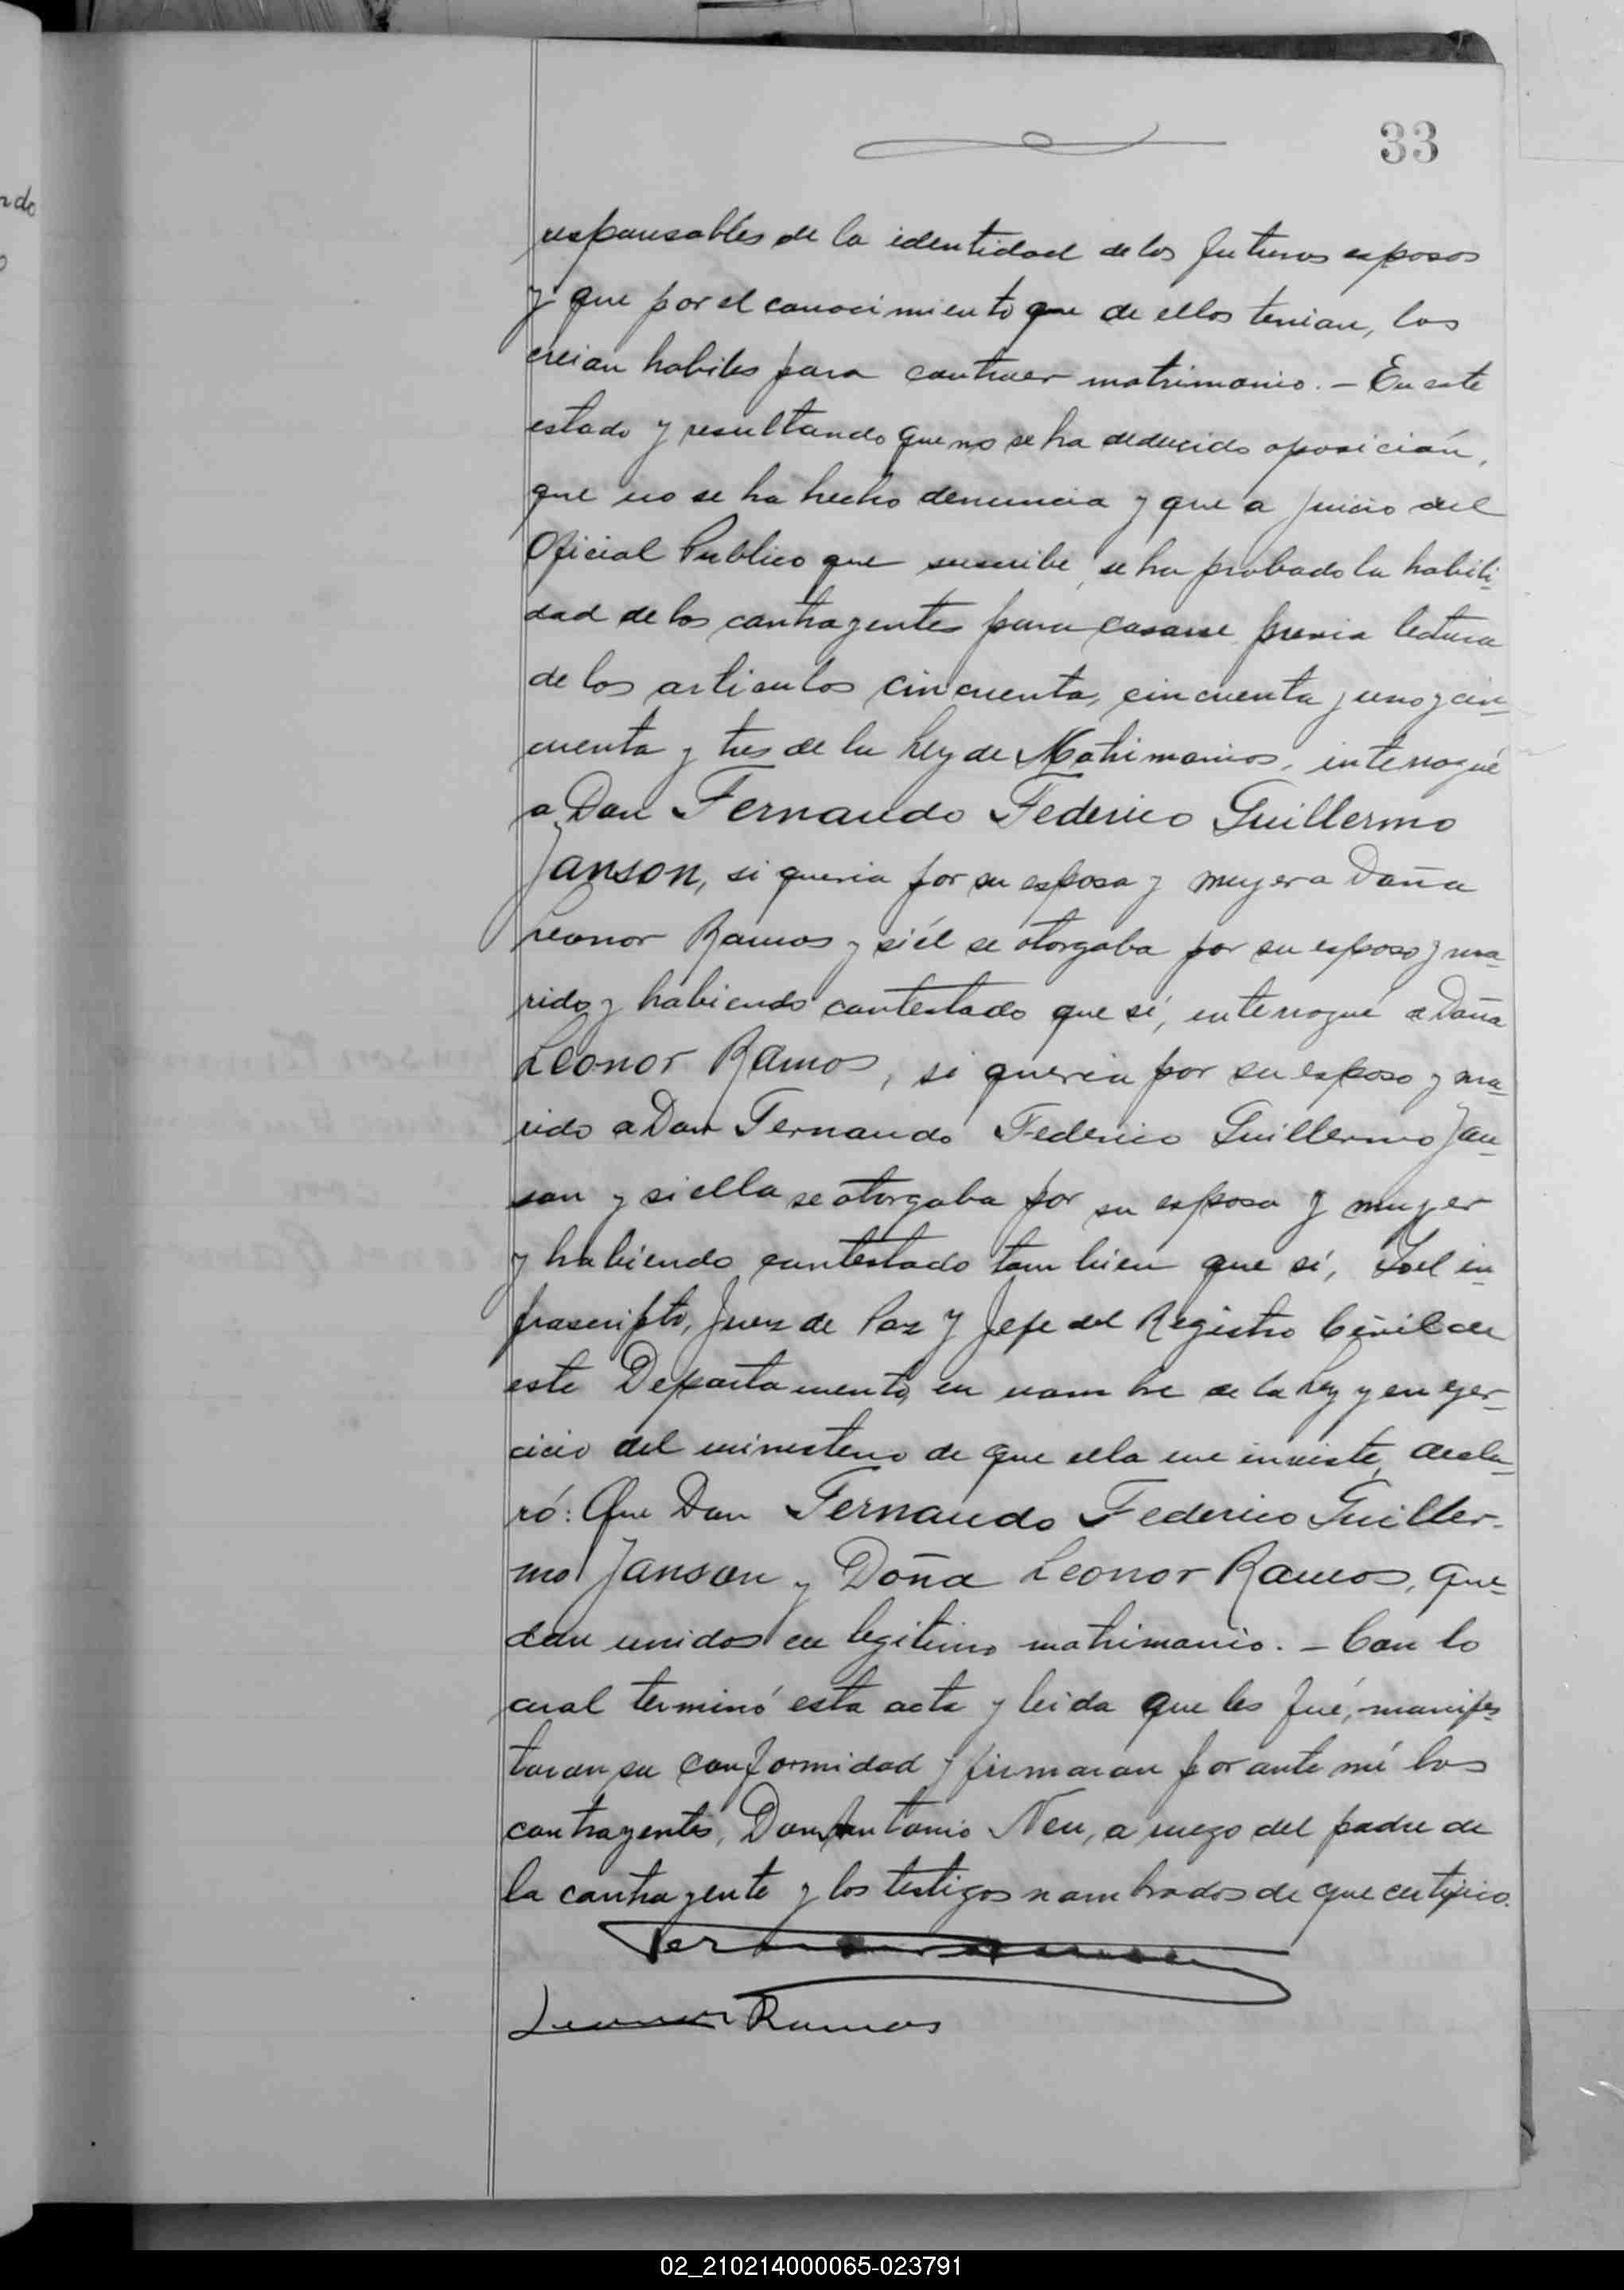 ndo
33
responsables de la identidad de los futuros esposos
y que por el conocimiento que de ellos tenian, los
creian habiles para contraer matrimonio. - En este
estado y resultando que no se ha deducido oposición,
que no se ha hecho denuncia y que a juicio del
Oficial Publico que suscribe, se ha probado la habili-
dad de los contrayentes para casarse previa lectura
de los articulos cincuenta, cincuenta y uno y cin-
cuenta y tres de la Ley de Matrimonios, interrogué
a Don Fernando Federico Guillermo
Janson, si queria por su esposa y mujer a Doña
Leonor Ramos y si él se otorgaba por su esposo y ma-
rido y habiendo contestado que sí, interrogué a Doña
Leonor Ramos, si queria por su esposo y ma-
rido a Don Fernando Federico Guillermo Jan-
son y si ella se otorgaba por su esposa y mujer
y habiendo contestado tambien que sí, Yo el in-
frascripto, Juez de Paz y Jefe del Registro Civil de
este Departamento, en nombre de la Ley y en ejer-
cicio del ministerio de que ella me inviste, decla-
ró: Que Don Fernando Federico Guiller-
mo Janson y Doña Leonor Ramos, que-
dan unidos en legitimo matrimonio. - Con lo
cual terminó esta acta y leida que les fué, manifes-
taron su conformidad y firmaron por ante mí los
contrayentes, Don Antonio Neu, a ruego del padre de
la contrayente y los testigos nombrados de que certifico.
Leonor Ramos
02_210214000065-023791